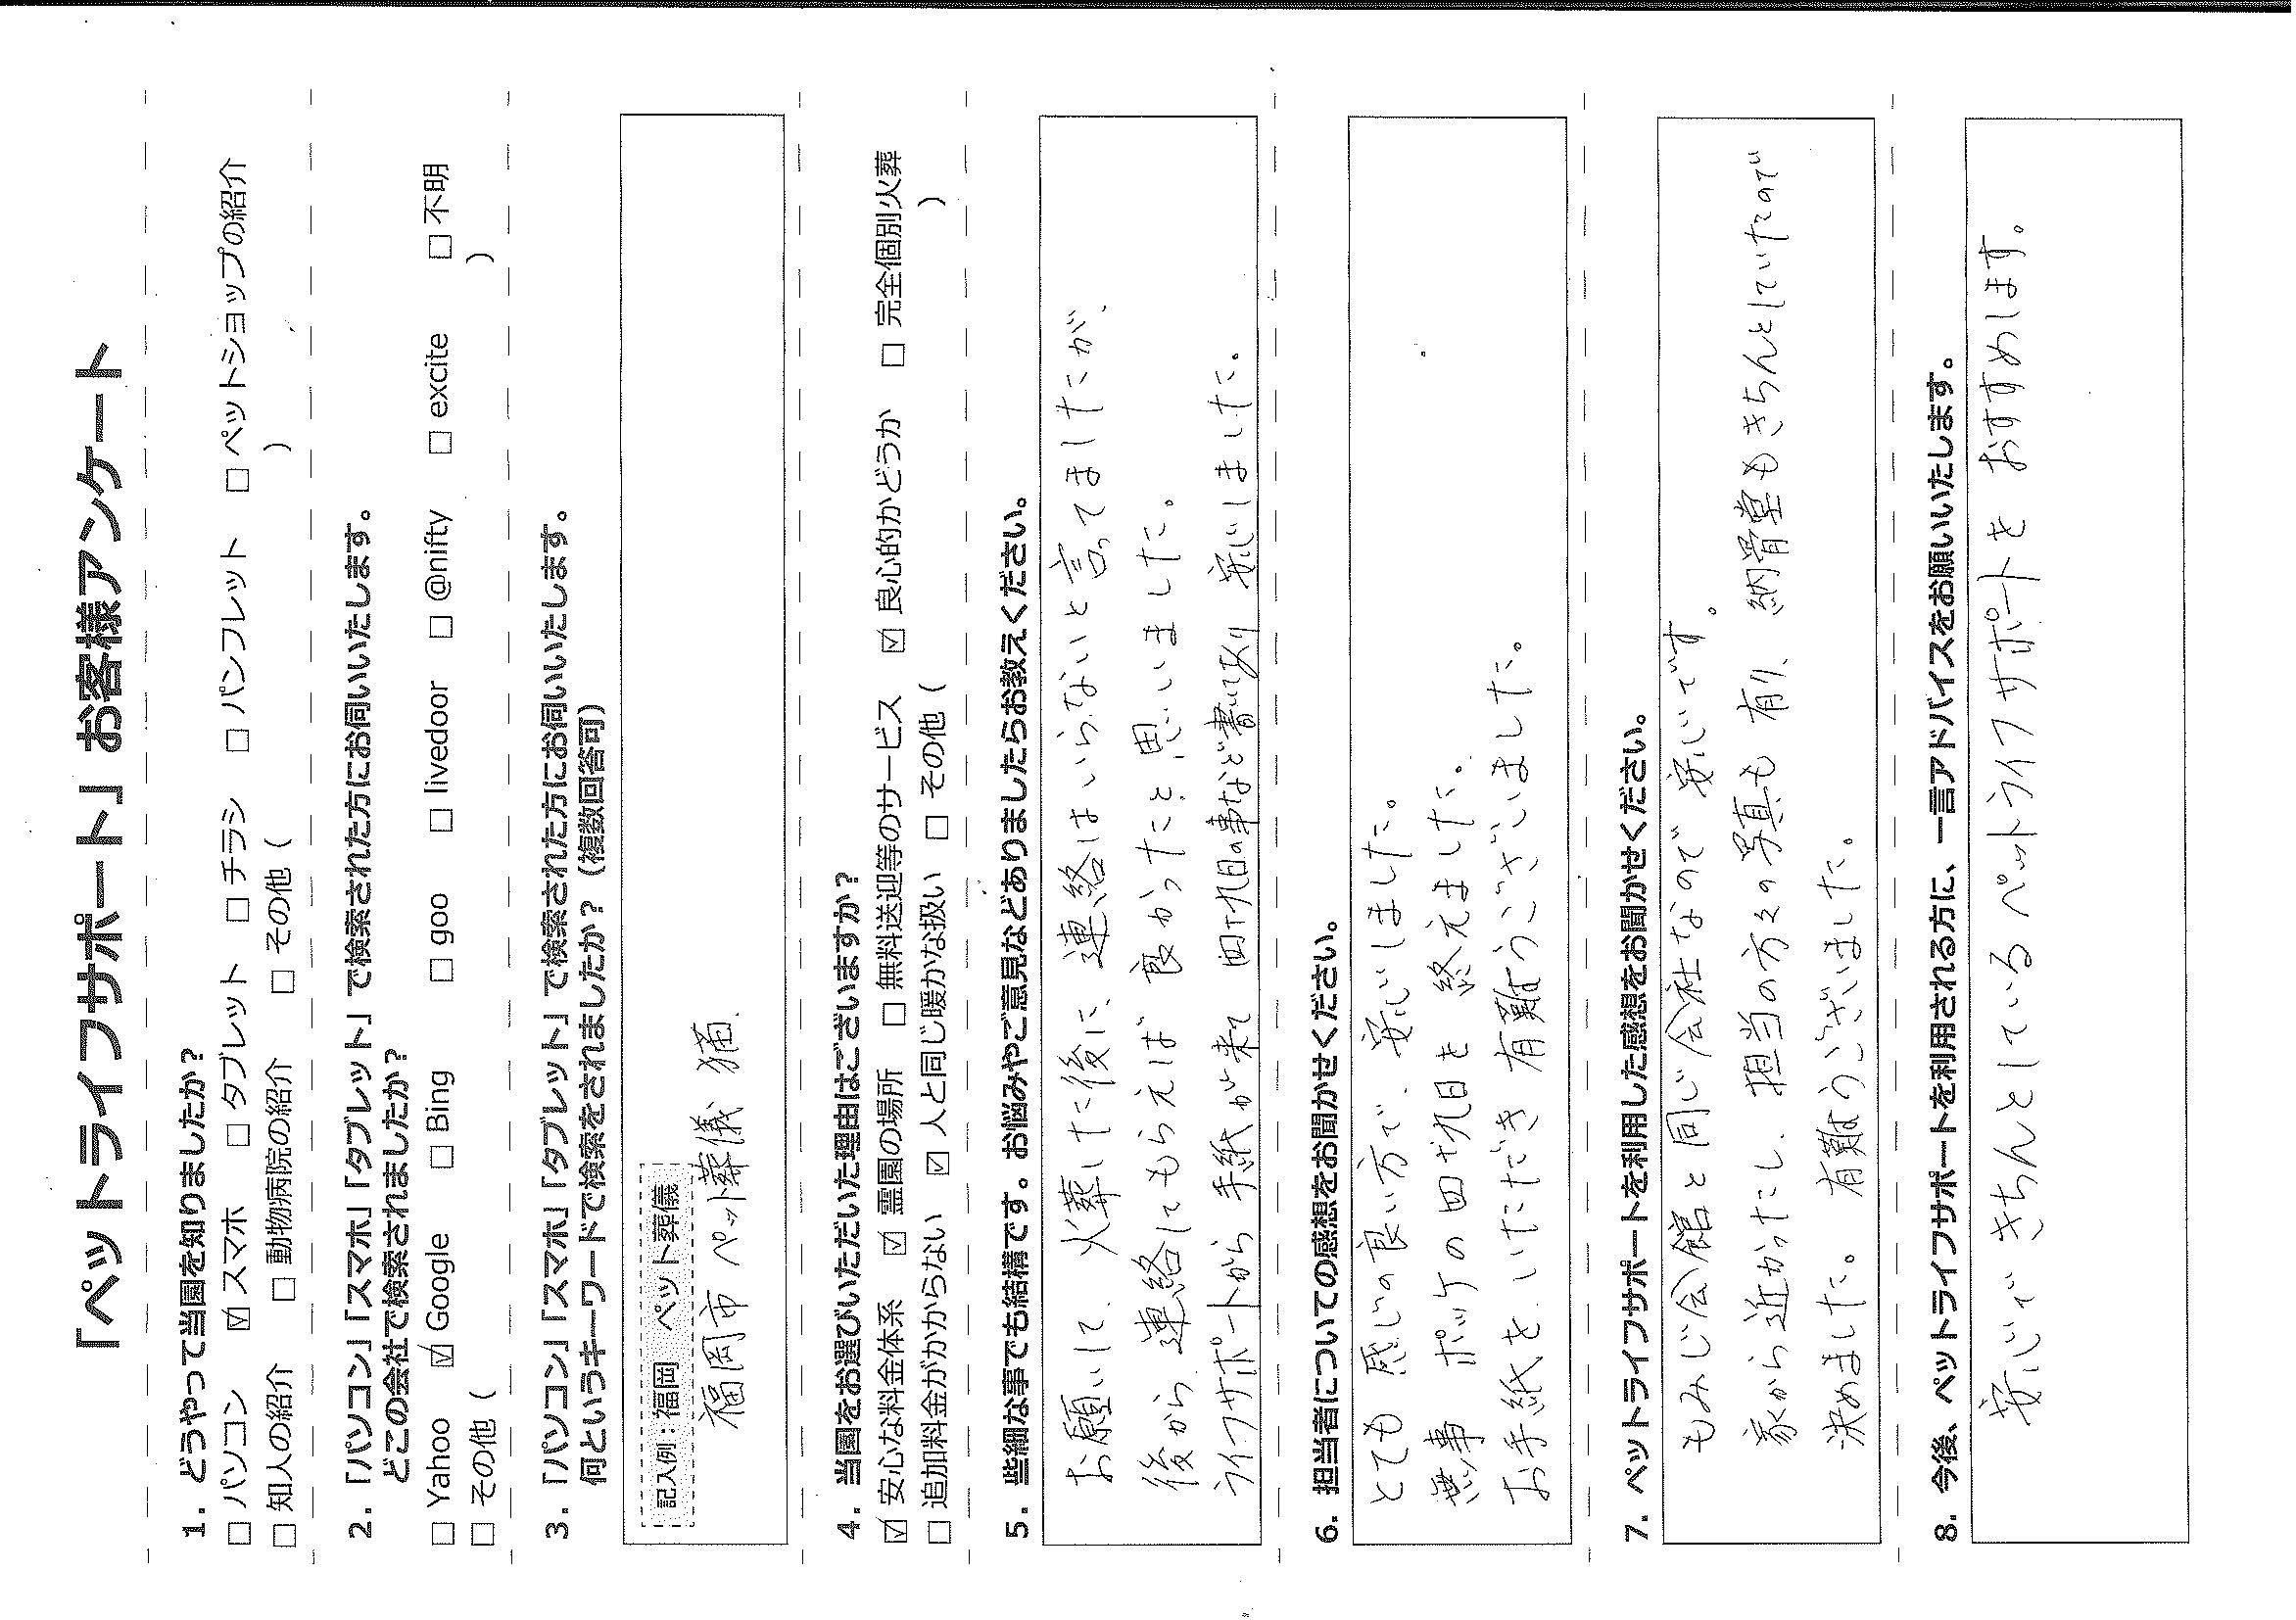 「ペットライフサポート」お客様アンケート
1．どうやって当園を知りましたか？
□ パソコン ☑ スマホ □ タブレット □ チラシ □ パンフレット □ ペットショップの紹介
□ 知人の紹介 □ 動物病院の紹介 □ その他（ ）
2．「パソコン」「スマホ」「タブレット」で検索された方にお伺いいたします。
どこの会社で検索されましたか？
□ Yahoo ☑ Google □ Bing □ goo □ livedoor □ @nifty □ excite □ 不明
□ その他（ ）
3．「パソコン」「スマホ」「タブレット」で検索された方にお伺いいたします。
何というキーワードで検索をされましたか？（複数回答可）
記入例：福岡 ペット葬儀
福岡市 ペット葬儀 猫
4．当園をお選びいただいた理由はございますか？
☑ 安心な料金体系 ☑ 霊園の場所 □ 無料送迎等のサービス ☑ 良心的かどうか □ 完全個別火葬
□ 追加料金がかからない ☑ 人と同じ暖かな扱い □ その他（ ）
5．些細な事でも結構です。お悩みやご意見などありましたらお教えください。
お願いして、火葬した後に、連絡はいらないと言ってましたが、
後から、連絡してもらえば 良かったと思いました。
ライフサポートから手紙が来て 四十九日の事など書いてあり 安心しました。
6．担当者についての感想をお聞かせください。
とても 感じの良い方で、安心しました。
無事 ポッケの四十九日を 終えました。
お手紙を いただき 有難うございました。
7．ペットライフサポートを利用した感想をお聞かせください。
もみじ会館と同じ会社なので 安心です。
家から近かったし、担当の方々の写真も 有り、納骨堂もきちんとしていたので
決めました。有難うございました。
8．今後、ペットライフサポートを利用される方に、一言アドバイスをお願いいたします。
安心で きちんとしているペットライフサポートを おすすめします。